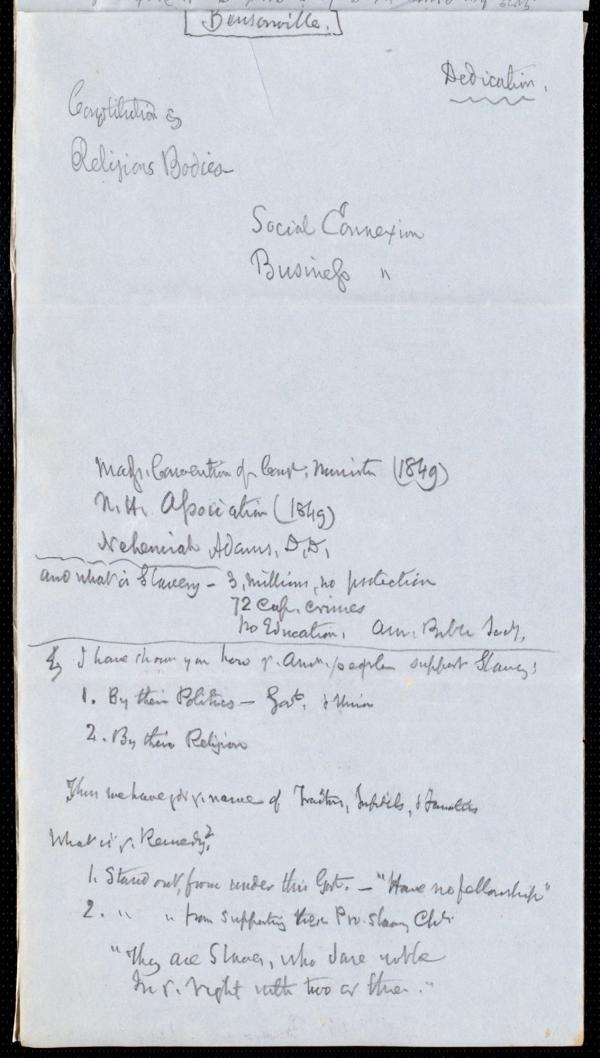 Bensonville.
Dedication.
Constitution &
Religious Bodies
Social Connexion
Business "
Mass. Convention of Cong. Ministers (1849)
N. H. Association (1849)
Nehemiah Adams, D.D.,
and what is Slavery – 3, millions, no protection
72 cap. crimes
No Education, Am. Bible Socy,
I have shown you how ye. Amn. people support Slavery:
1. By their Politics – Govt. & Union
2. By their Religion
Thus we have got ye name of Traitors, Infidels, & Fanatics
What is ye. Remedy?
1. Stand out, from under this Govt. – "Have no fellowship"
2. " " from supporting these Pro-slavery Chhs.
"They are Slaves, who dare not be
In ye. right with two or three."